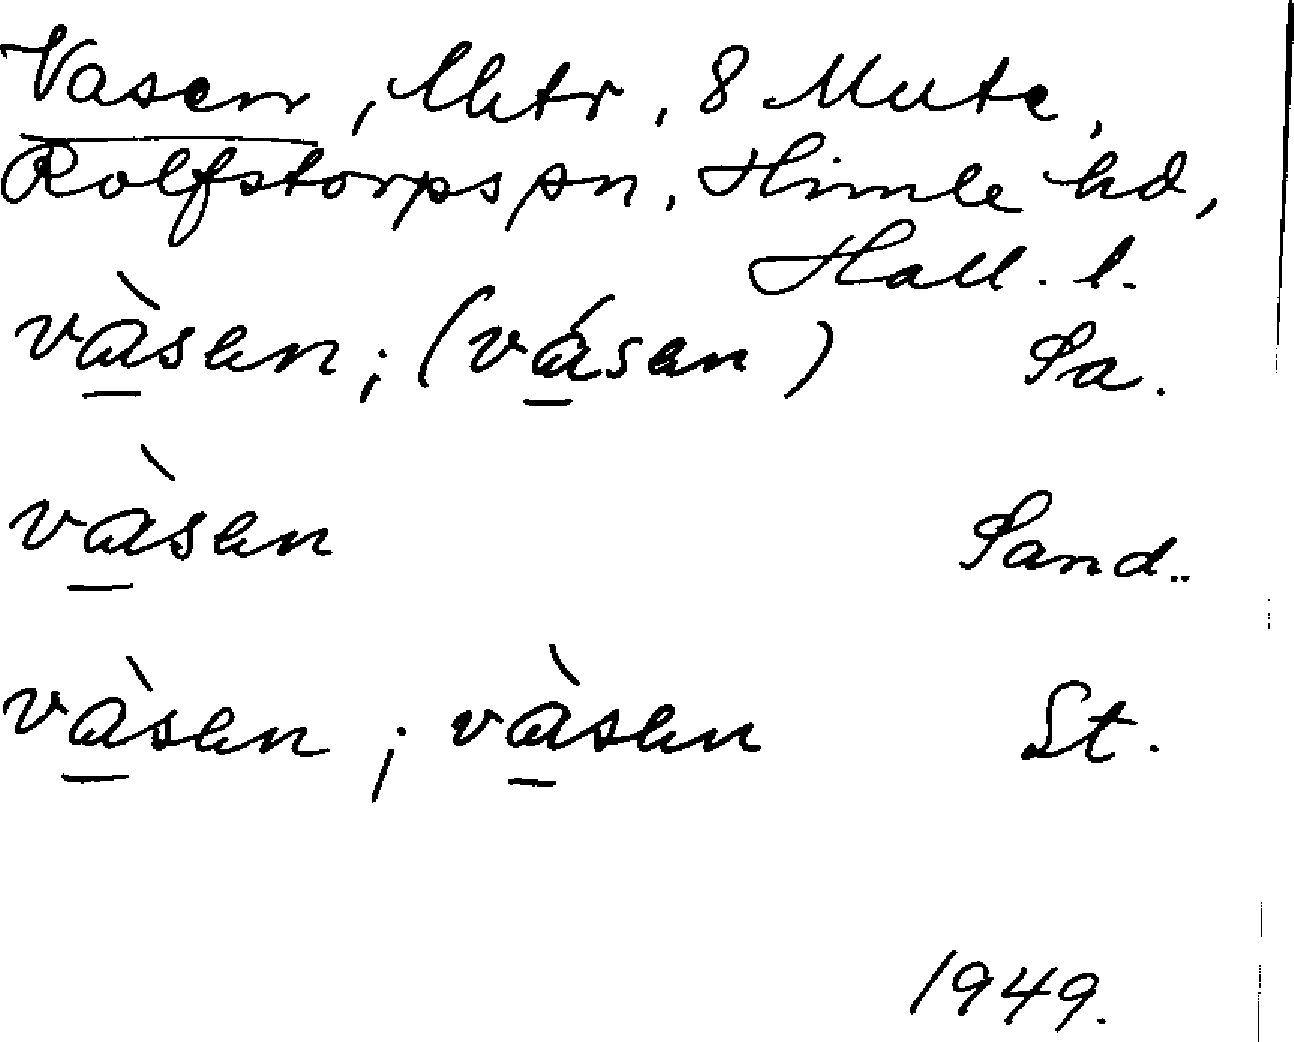 Vasen, Mtr, 8 Mute,
Rolfstorps sn, Himle hd,
Hall. l.
vàsen; (vásen) Sa.
vàsen Sand.
vàsen; vàsen St.
1949.